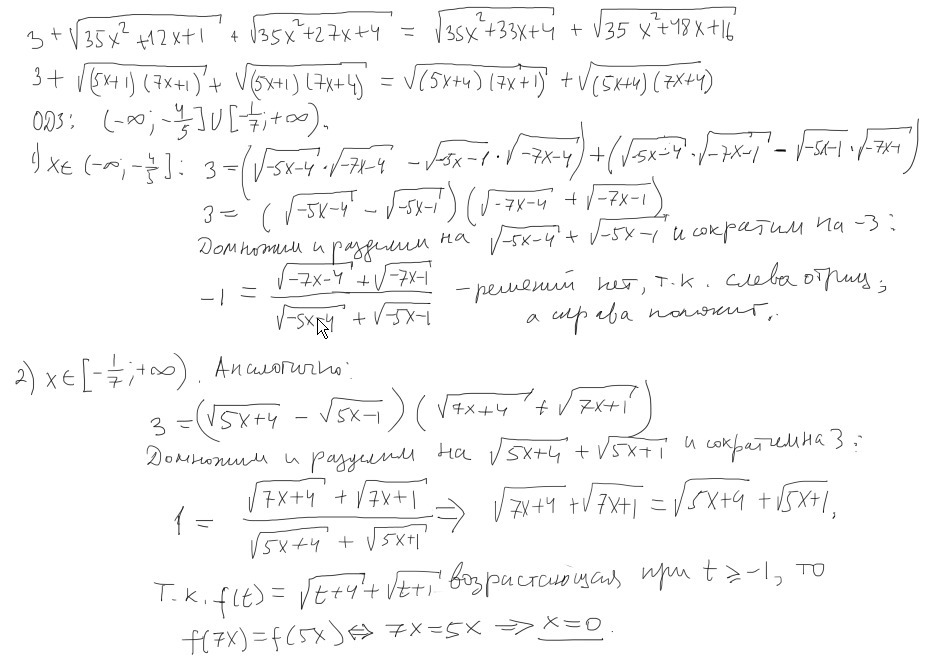 3 + √(35x² + 12x + 1) + √(35x² + 27x + 4) = √(35x² + 33x + 4) + √(35x² + 48x + 16)
3 + √((5x+1)(7x+1)) + √((5x+1)(7x+4)) = √((5x+4)(7x+1)) + √((5x+4)(7x+4))
ОДЗ: (-∞; -4/5] ∪ [-1/7; +∞).
1) x ∈ (-∞; -4/5]: 3 = (√(-5x-4)·√(-7x-4) - √(-5x-1)·√(-7x-4)) + (√(-5x-4)·√(-7x-1) - √(-5x-1)·√(-7x-1))
3 = (√(-5x-4) - √(-5x-1)) (√(-7x-4) + √(-7x-1))
Домножим и разделим на √(-5x-4) + √(-5x-1) и сократим на -3:
-1 = (√(-7x-4) + √(-7x-1)) / (√(-5x-4) + √(-5x-1)) - решений нет, т.к. слева отриц,
а справа положит.
2) x ∈ [-1/7; +∞). Аналогично:
3 = (√(5x+4) - √(5x-1)) (√(7x+4) + √(7x+1))
Домножим и разделим на √(5x+4) + √(5x+1) и сократим на 3:
1 = (√(7x+4) + √(7x+1)) / (√(5x+4) + √(5x+1)) ⇒ √(7x+4) + √(7x+1) = √(5x+4) + √(5x+1),
Т.к. f(t) = √(t+4) + √(t+1) возрастающая при t ≥ -1, то
f(7x) = f(5x) ⇔ 7x = 5x ⇒ x = 0.